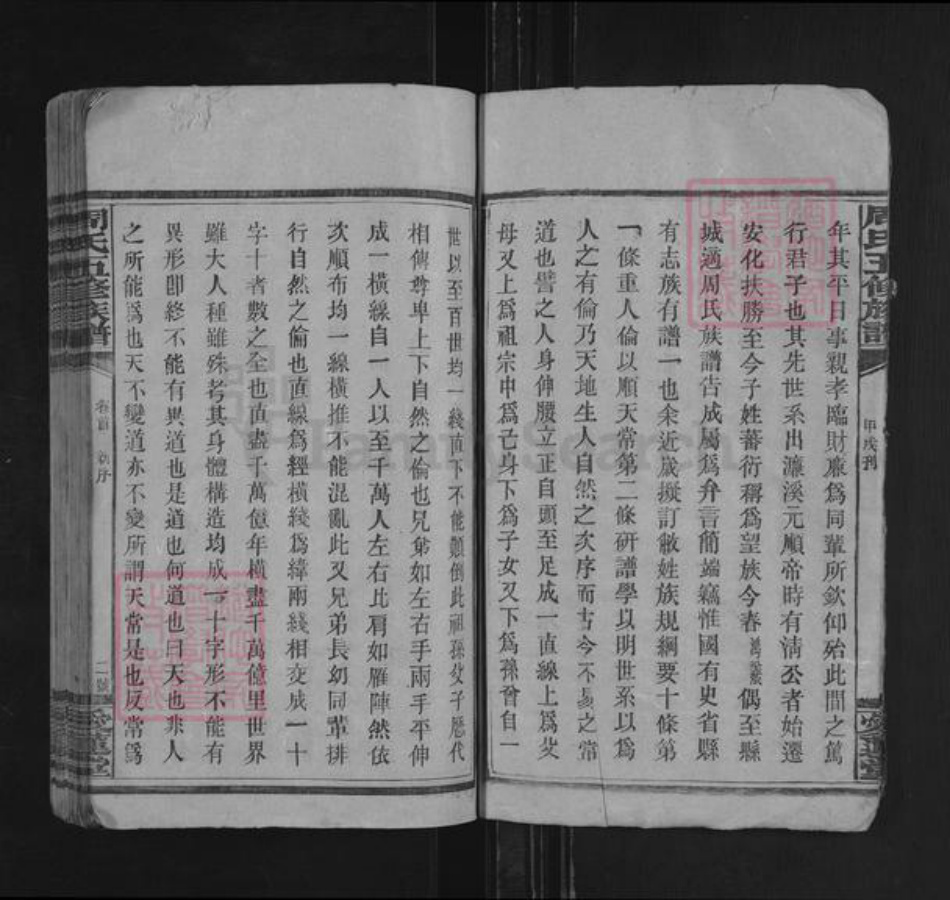 周氏五修族譜
甲戌刊
愛蓮堂
年其平日事親孝臨財廉爲同輩所欽仰殆此間之篤
行君子也其先世系出濂溪元順帝時有淸公者始遷
安化扶勝至今子姓蕃衍稱爲望族今春偶至縣
城適周氏族譜告成屬爲弁言簡端竊惟國有史省縣
有志族有譜一也余近歲擬訂敝姓族規綱要十條第
一條重人倫以順天常第二條研譜學以明世系以爲
人之有倫乃天地生人自然之次序而古今不易之常
道也譬之人身伸腰立正自頭至足成一直線上爲父
母又上爲祖宗中爲亡身下爲子女又下爲孫曾自一
世以至百世均一綫直下不能顚倒此祖孫父子歷代
相傳尊卑上下自然之倫也兄弟如左右手兩手平伸
成一橫線自一人以至千萬人左右比肩如雁陣然依
次順布均一線橫推不能混亂此又兄弟長幼同輩排
行自然之倫也直線爲經橫綫爲緯兩綫相交成一十
字十者數之全也直盡千萬億年橫盡千萬億里世界
雖大人種雖殊考其身體構造均成一十字形不能有
異形卽終不能有異道也是道也何道也曰天也非人
之所能爲也天不變道亦不變所謂天常是也反常爲
周氏五修族譜
卷首 新序
二號
愛蓮堂
FamilySearch